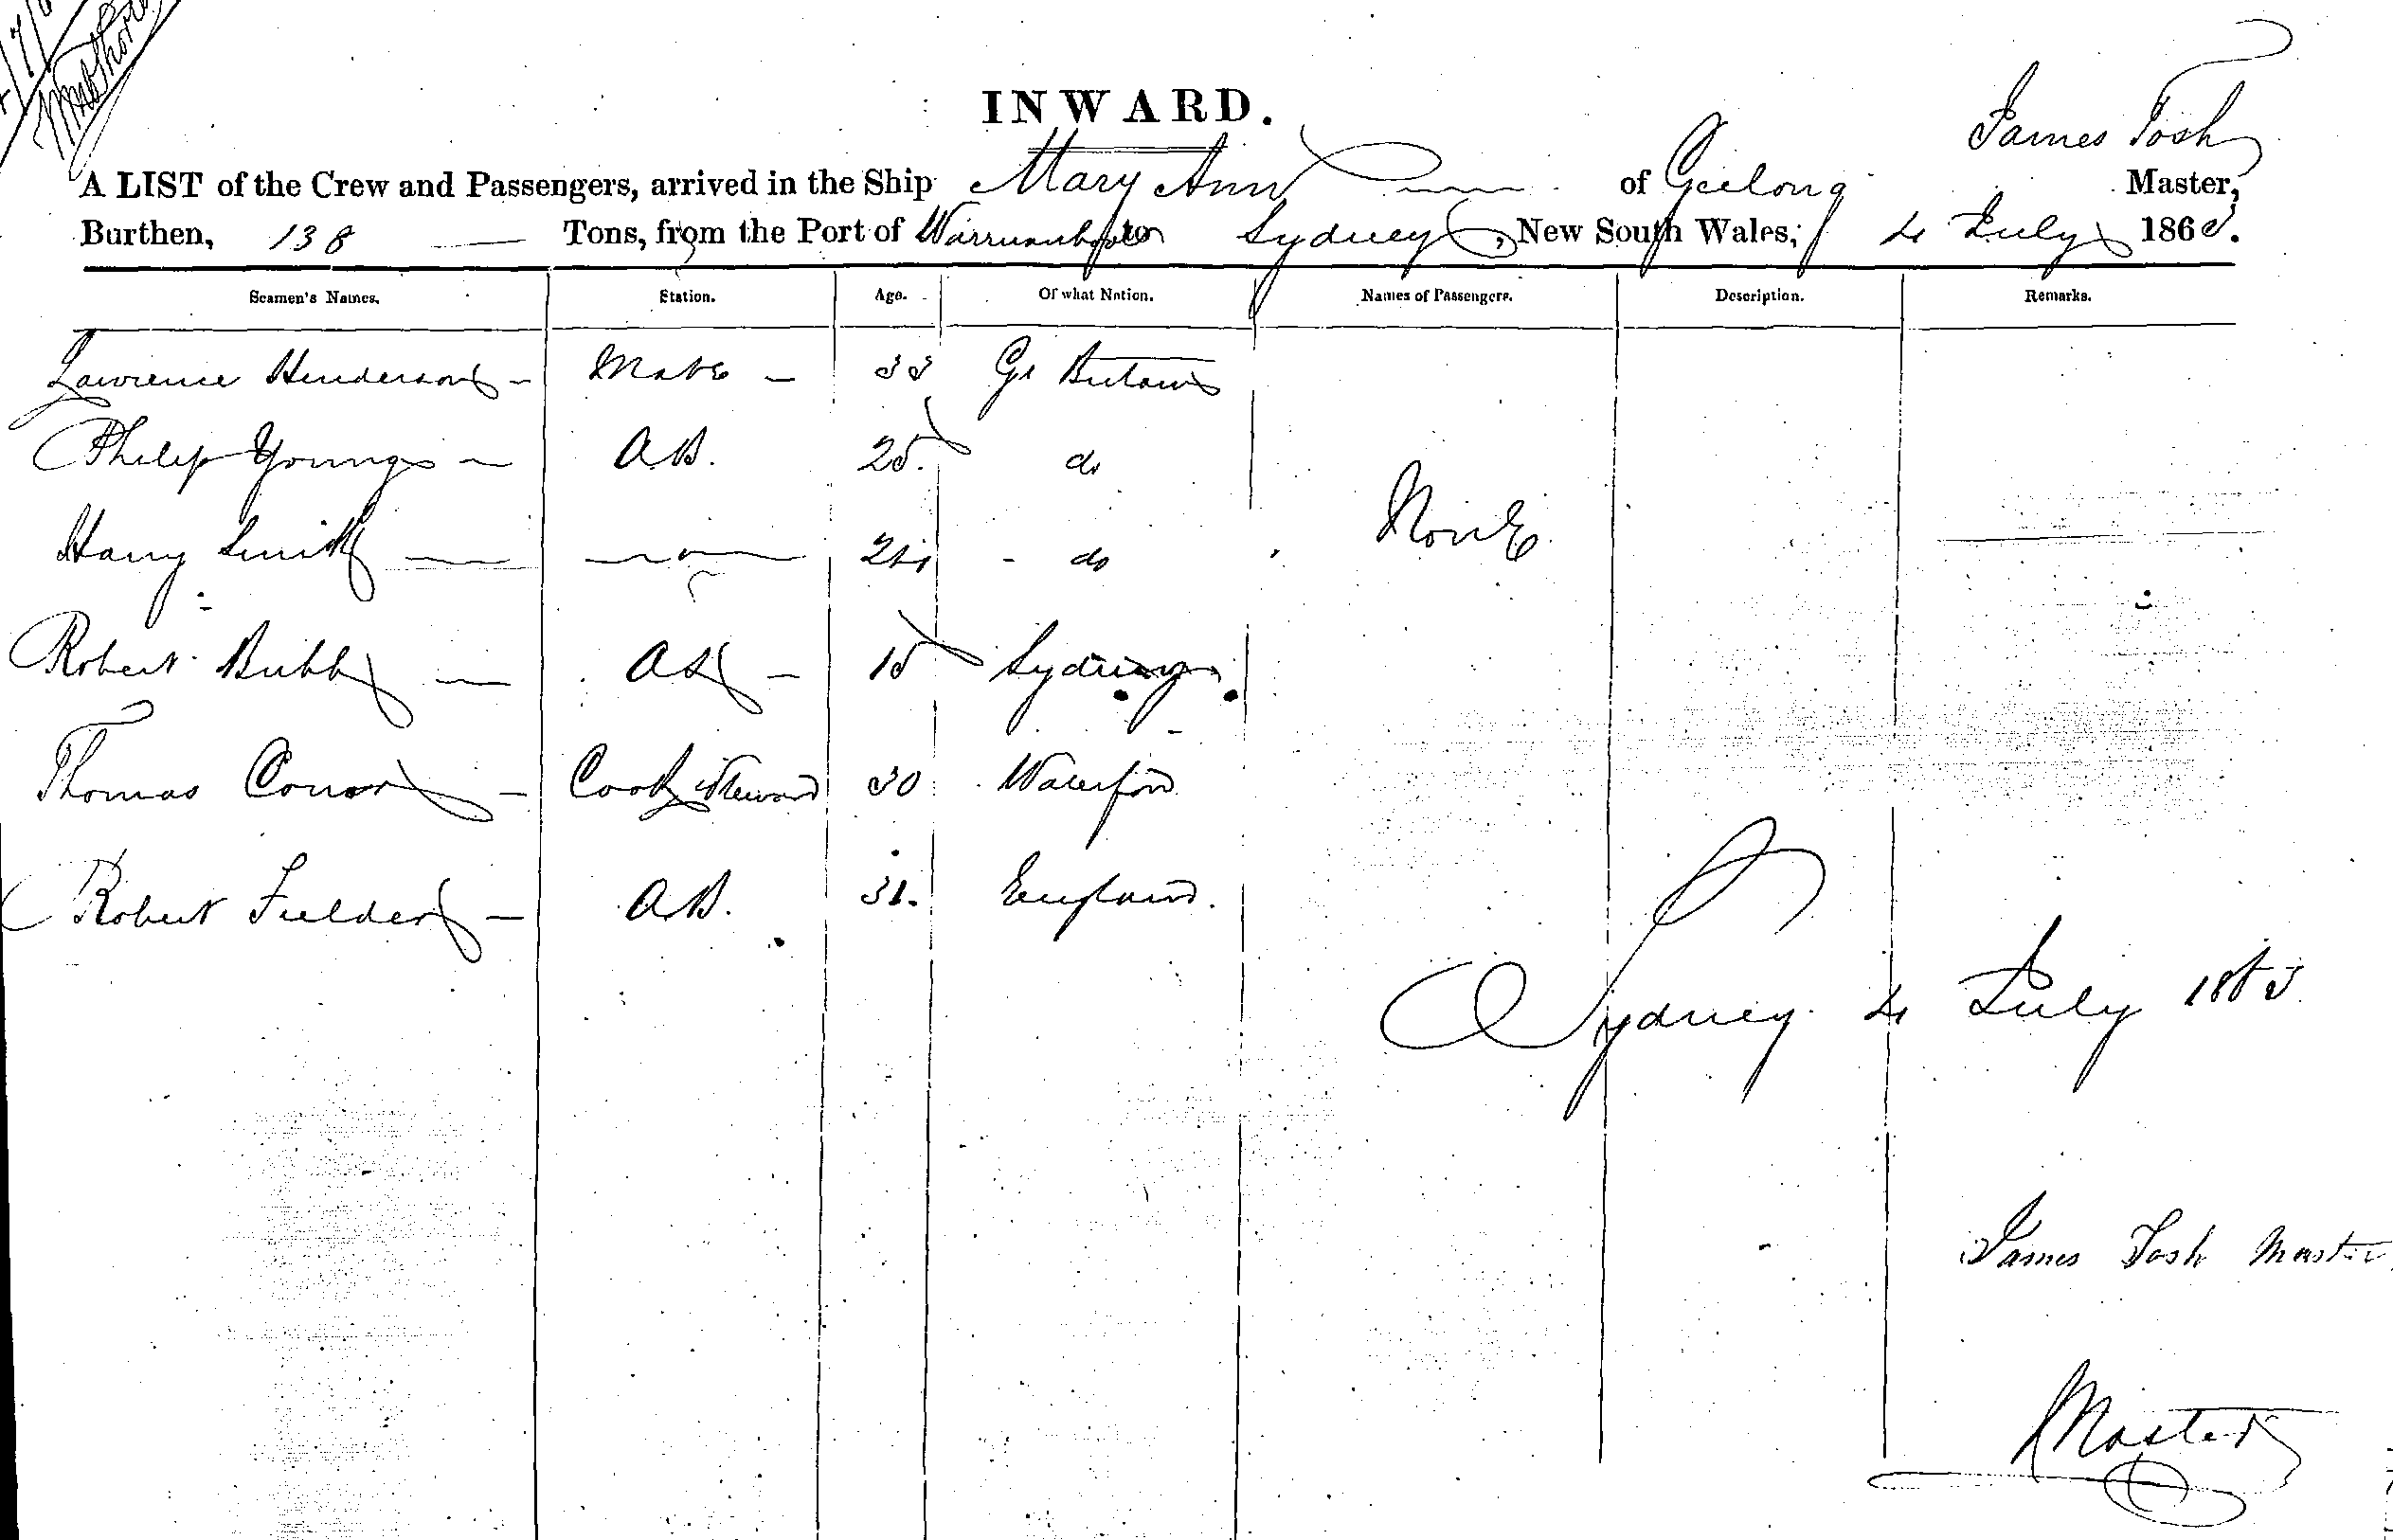 INWARD.
James Tosh
A LIST of the Crew and Passengers, arrived in the Ship Mary Ann of Geelong Master,
Burthen, 138 Tons, from the Port of Warrnambool to Sydney, New South Wales, 4 July 1863.
Seamen's Names. Station. Age. Of what Nation. Names of Passengers. Description. Remarks.
Lawrence Henderson - Mate - 33 Gt Britain
Philip Young - A.B. 25. do
None
Harry Smith 24 - do
Robert Bubb A S - 15 Sydney
Thomas Conor - Cook & Steward 30 Waterford
Robert Fielder - A.B. 31. England.
Sydney. 4 July 1863
James Tosh Master
Master